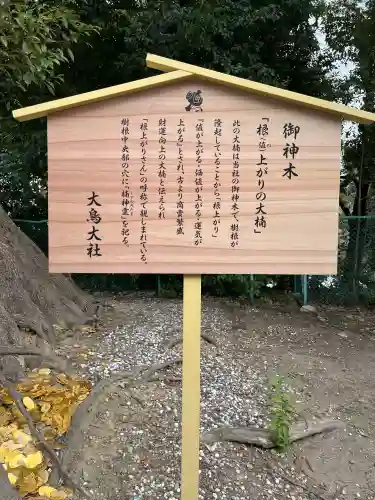 御神木
「根(値)上がりの大楠」
この大楠は当社の御神木で、樹根が
隆起していることから「根上がり」
『値が上がる・価値が上がる・運気が
上がる』とされ、古より商売繁盛
財運向上の大楠と伝えられ
「根上がりさん」の呼称で親しまれている。
樹根中央部の穴に「楠神霊」を祀る。
大鳥大社